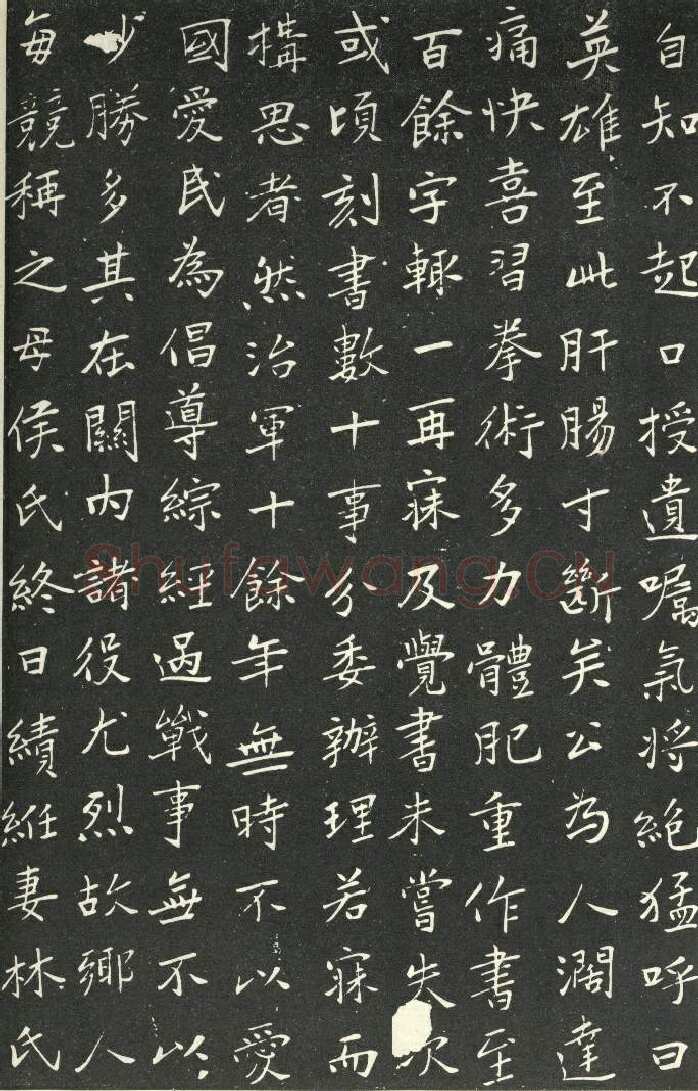 自知不起口授遺囑氣将絶猛呼曰
英雄至此肝腸寸斷矣公為人濶達
痛快喜習拳術多力體肥重作書至
百餘字輙一再寐及覺書未嘗失次
或頃刻書數十事分委辦理若寐而
搆思者然治軍十餘年無時不以愛
國愛民為倡導綜經過戰事無不以
少勝多其在關内諸役尤烈故鄉人
每競稱之母侯氏終日績絍妻林氏
Shufawang.CN